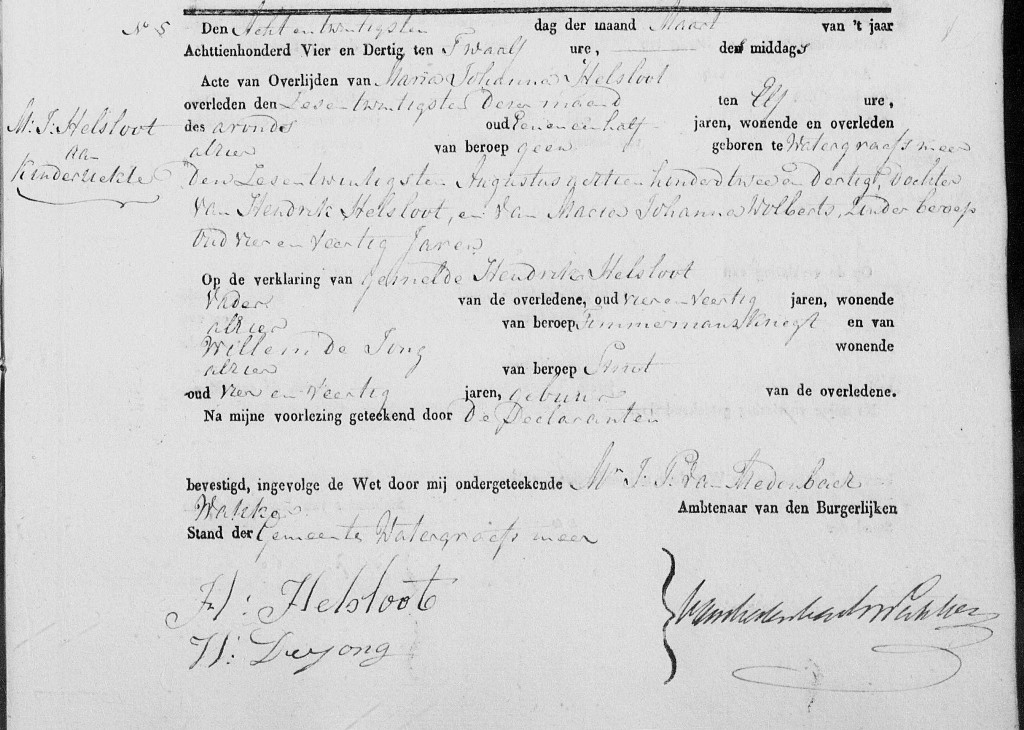 No 5 Den Acht en twintigsten dag der maand Maart van 't jaar
Achttienhonderd Vier en Dertig ten Twaalf ure, des middags
Acte van Overlijden van Maria Johanna Helsloot
overleden den Zesentwintigsten dezer maand ten Elf ure,
M: J: Helsloot
aan
Kinderziekte
des avonds oud een en een half jaren, wonende en overleden
alhier van beroep geen geboren te Watergraafsmeer
den Zesentwintigsten Augustus achttienhonderd twee en dertig, Dochter
van Hendrik Helsloot, en van Maria Johanna Wolberts, zonder beroep
oud vier en veertig Jaren
Op de verklaring van gemelde Hendrik Helsloot
Vader van de overledene, oud vier en veertig jaren, wonende
alhier van beroep Timmermans knegt en van
Willem De Jong wonende
alhier van beroep Smit
oud vier en veertig jaren, gebuur van de overledene.
Na mijne voorlezing geteekend door De Declaranten
bevestigd, ingevolge de Wet door mij ondergeteekende Mr J: P: van
Wakker Ambtenaar van den Burgerlijken
Stand der Gemeente Watergraafsmeer
H: Helsloot
W: Dejong